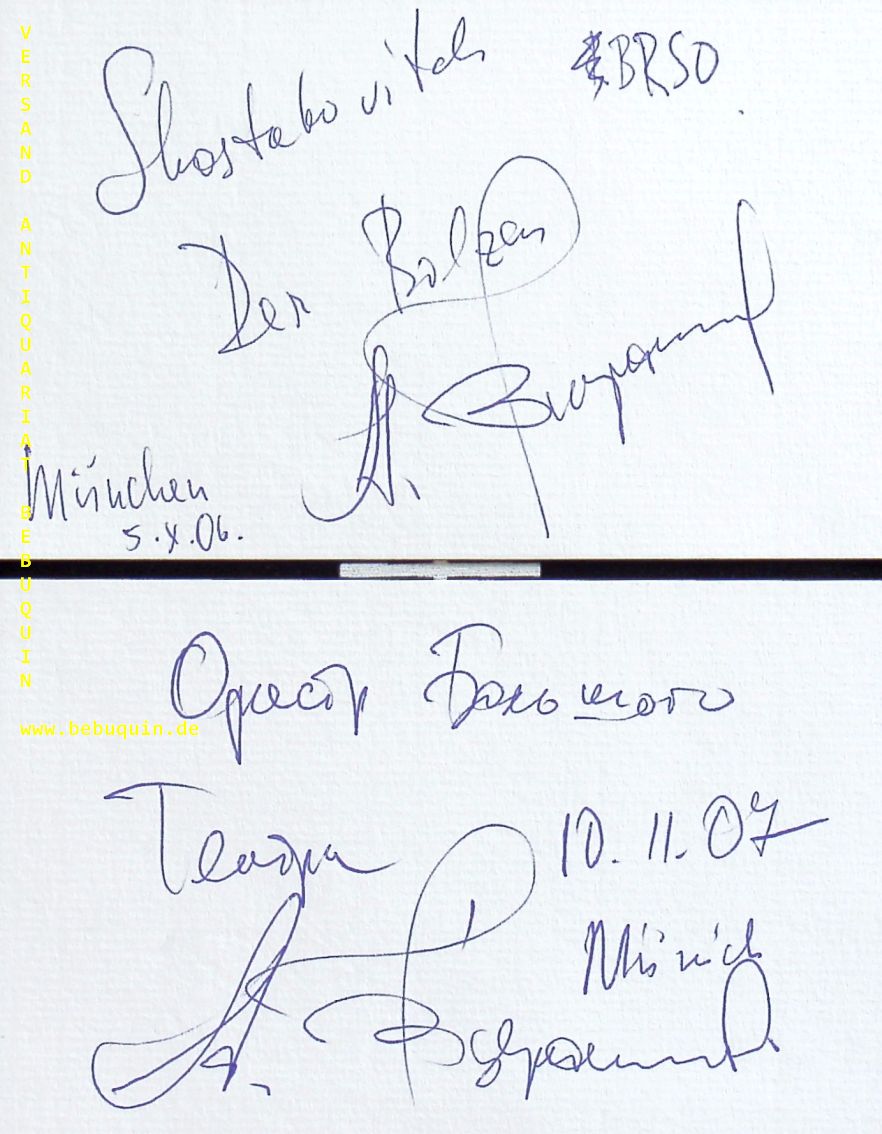 Shostakovitch BRSO
Der Bolzen
А.
München
5.X.06.
Оркестр Большого
Театра
10.11.07
Münich
А.
VERSAND ANTIQUARIAT BEBUQUIN
www.bebuquin.de